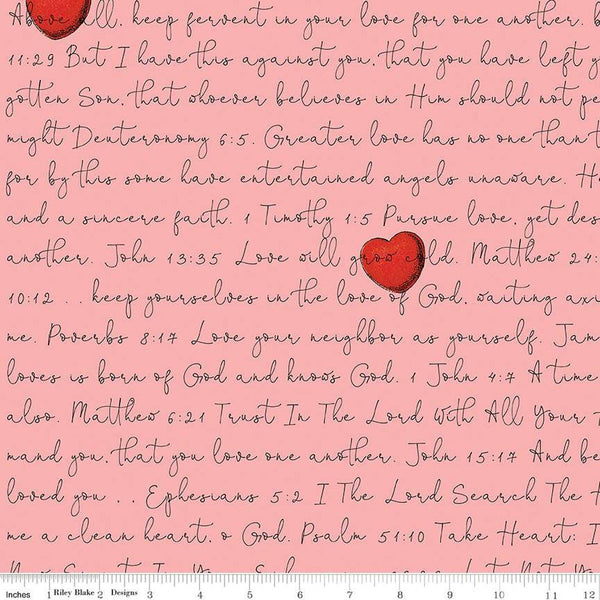 Above all, keep fervent in your love for one another. b
11:29 But I have this against you, that you have left y
gotten Son, that whoever believes in Him should not pe
might Deuteronomy 6:5. Greater love has no one than t
for by this some have entertained angels unaware. H
and a sincere faith. 1 Timothy 1:5 Pursue love, yet des
another. John 13:35 Love will grow cold. Matthew 24:
10:12 . . keep yourselves in the love of God, waiting axi
me. Poverbs 8:17 Love your neighbor as yourself. Jam
loves is born of God and knows God. 1 John 4:7 A time
also. Matthew 6:21 Trust In The Lord With All Your
mand you, that you love one another. John 15:17 And be
loved you . . Ephesians 5:2 I The Lord Search The H
me a clean heart, o God. Psalm 51:10 Take Heart; I
Inches 1 Riley Blake 2 Designs 3 4 5 6 7 8 9 10 11 12